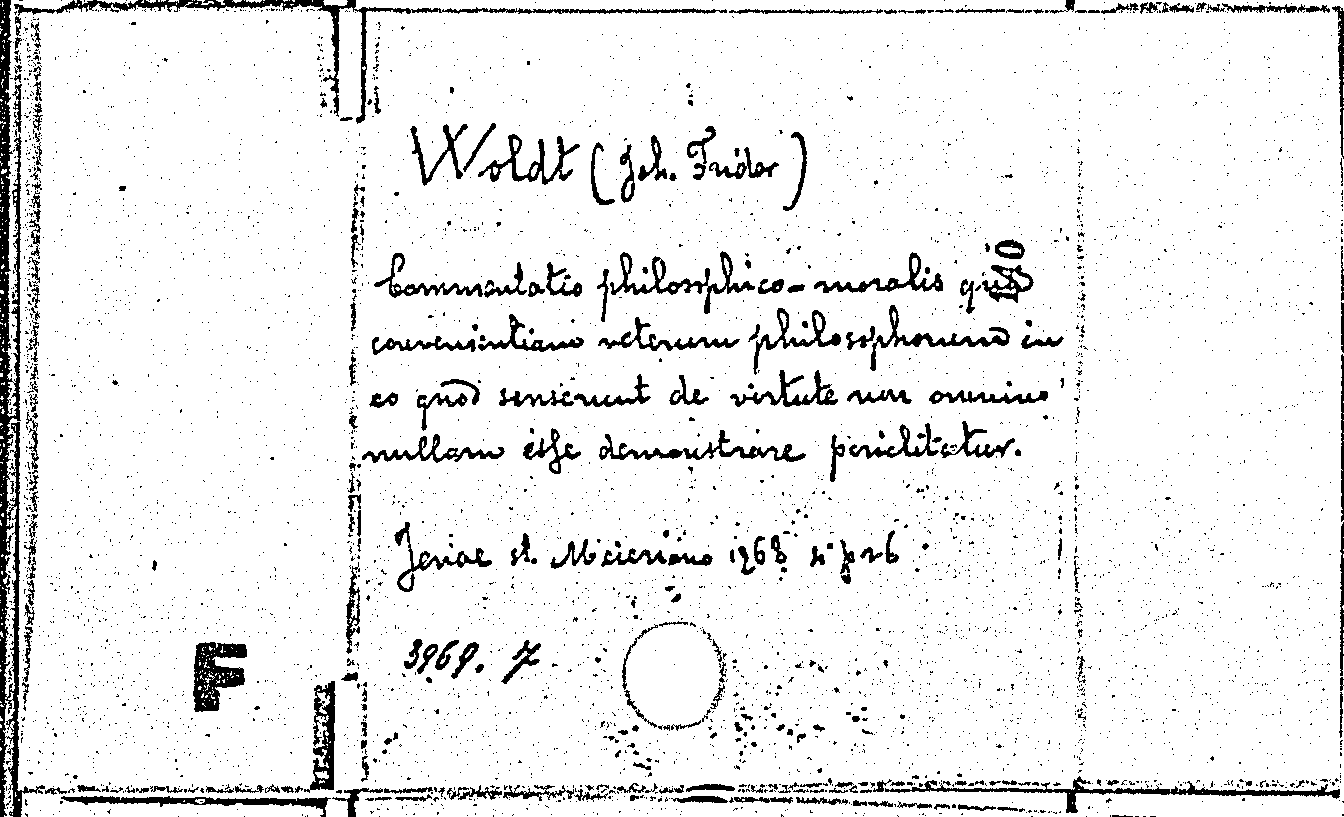 Woldt (Joh. Frider)
Commentatio philosophico-moralis qua
140
convenientiam veterum philosophorum in
eo quod senserunt de virtute non omnino
nullam esse demonstrare periclitatur.
Jenae st. 1768 4° p 26
3969. 7
F